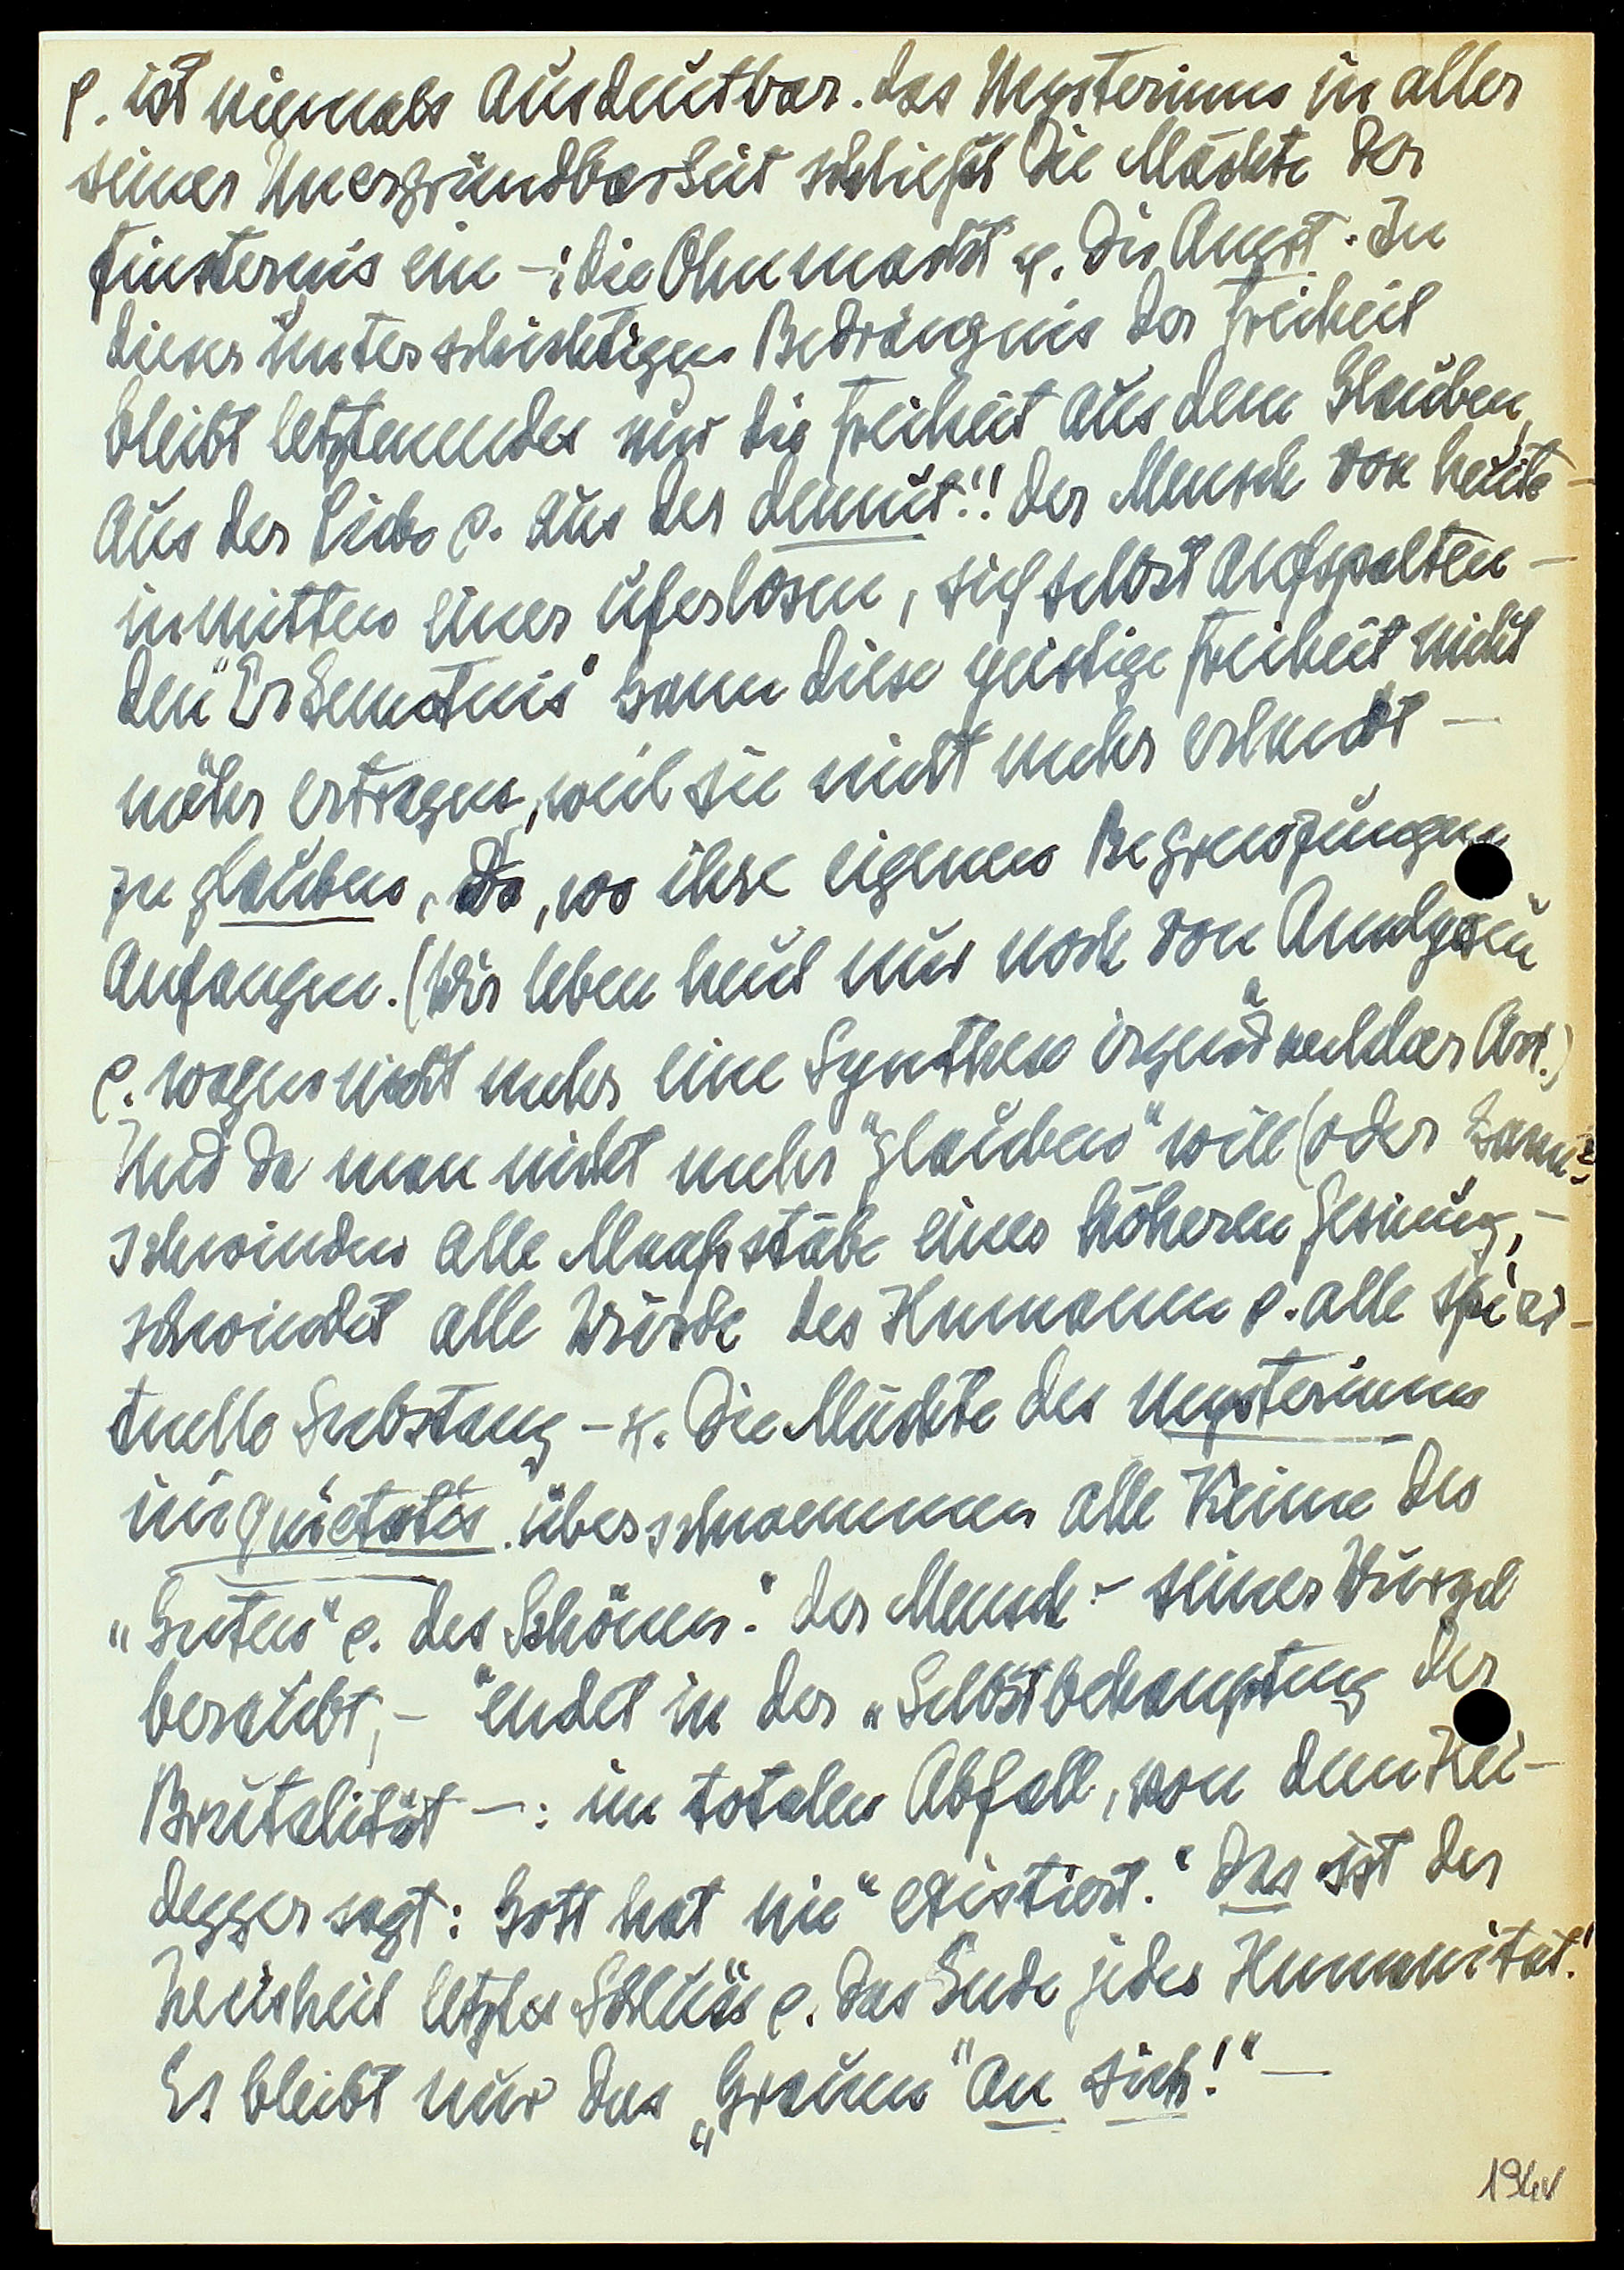 u. ist niemals ausdeutbar. das Mysterium in aller
seiner Unergründbarkeit schließt die Mächte der
Finsternis ein –: die Ohnmacht u. die Angst. In
dieser unterschichtigen Bedrängnis der Freiheit
bleibt letztenendes nur die Freiheit aus dem Glauben,
aus der Liebe u. aus der Demut!! der Mensch von heute –
inmitten einer uferlosen, sich selbst aufspalten-
den "Erkenntnis" kann diese geistige Freiheit nicht
mehr ertragen, weil sie nicht mehr erlaubt –
zu glauben, da, wo ihre eigenen Begrenzungen
anfangen. (Wir leben heut nur noch von Analysen
u. wagen nicht mehr eine Synthese irgendwelcher Art.)
Und da man nicht mehr "glauben" will (oder kann?)
schwinden alle Maaßstäbe einer höheren Gesinnung, –
schwindet alle Würde des Humanen u. alle spiri-
tuelle Substanz – u. die Mächte des Mysteriums
iniquietatis überschwemmen alle Keime des
„Guten" u. des Schönen." der Mensch – seiner Wurzel
beraubt, – endet in der „Selbstbehauptung der
Brutalität –: im totalen Abfall, von dem Hei-
degger sagt: Gott hat nie "existiert." Das ist der
Weisheit letzter Schluss u. das Ende jeder Humanität!
Es bleibt nur das „Grauen" an sich!" –